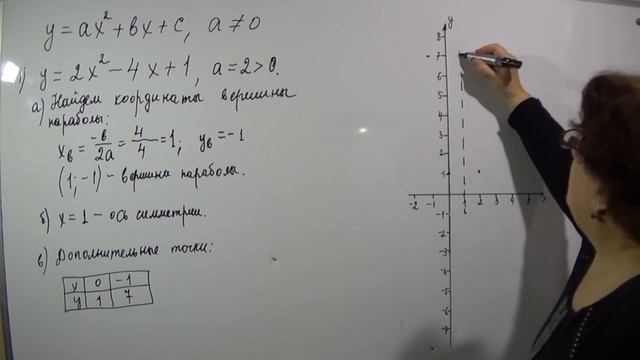 y = ax² + bx + c, a ≠ 0
1) y = 2x² − 4x + 1, a = 2 > 0.
а) Найдем координаты вершины
параболы:
xв = −b/2a = 4/4 = 1; yв = −1
(1; −1) – вершина параболы.
б) x = 1 – ось симметрии.
в) Дополнительные точки:
x 0 −1
y 1 7
y
8
7
6
5
4
3
2
1
-2 -1 1 2 3 4 5 x
-1
-2
-3
-4
-5
-6
-7